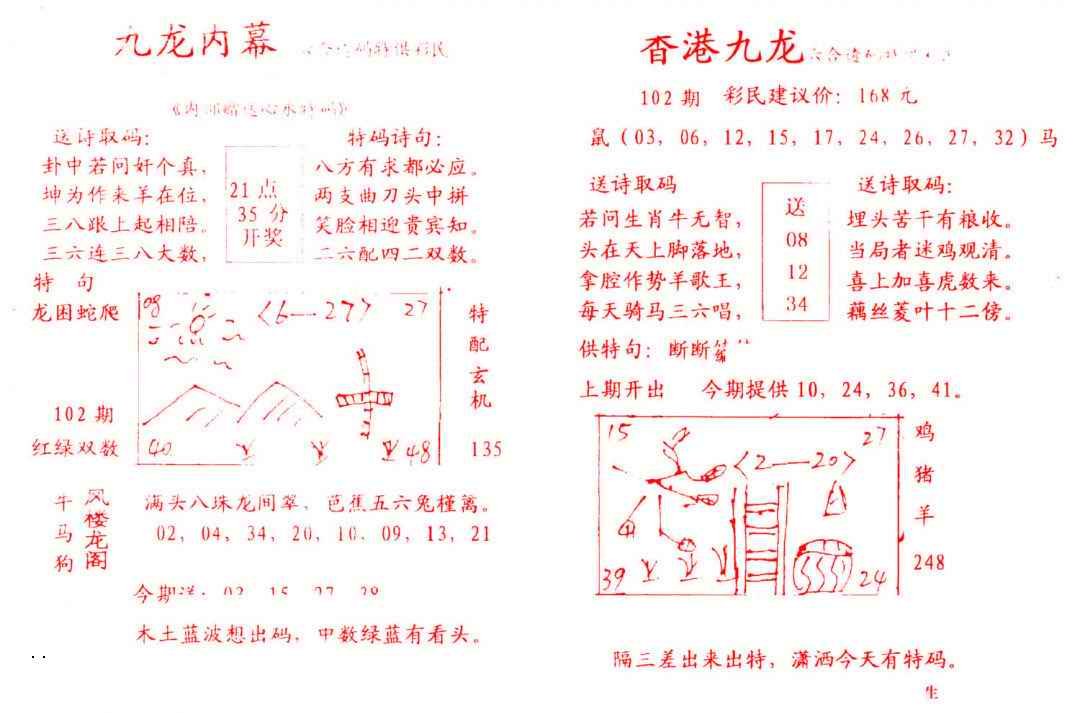 九龙内幕
码特供彩民
送诗取码:
卦中若问奸个真，
坤为作来羊在位，
三八跟上起相陪。
三六连三八大数，
21点
35 分
开奖
特码诗句:
八方有求都必应。
两支曲刀头中拼
笑脸相迎贵宾知。
二六配四二双数。
特 句
龙困蛇爬
102 期
红绿双数
09
<6—27>
27
40
48
特配玄机
135
牛马狗
风楼龙阁
满头八珠龙间翠，芭蕉五六兔槿篱。
02, 04, 34, 20, 10. 09, 13, 21
今期
木土蓝波想出码，中数绿蓝有看头。
香港九龙
六合
102 期 彩民建议价: 168 元
鼠（03, 06, 12, 15, 17, 24, 26, 27, 32）马
送诗取码
若问生肖牛无智，
头在天上脚落地，
拿腔作势羊歌王，
每天骑马三六唱，
送
08
12
34
送诗取码:
埋头苦干有粮收。
当局者迷鸡观清。
喜上加喜虎数来。
藕丝菱叶十二傍。
供特句: 断断
上期开出 今期提供 10, 24, 36, 41。
15
27
<2—20>
39
24
鸡
猪
羊
248
隔三差出来出特，潇洒今天有特码。
生